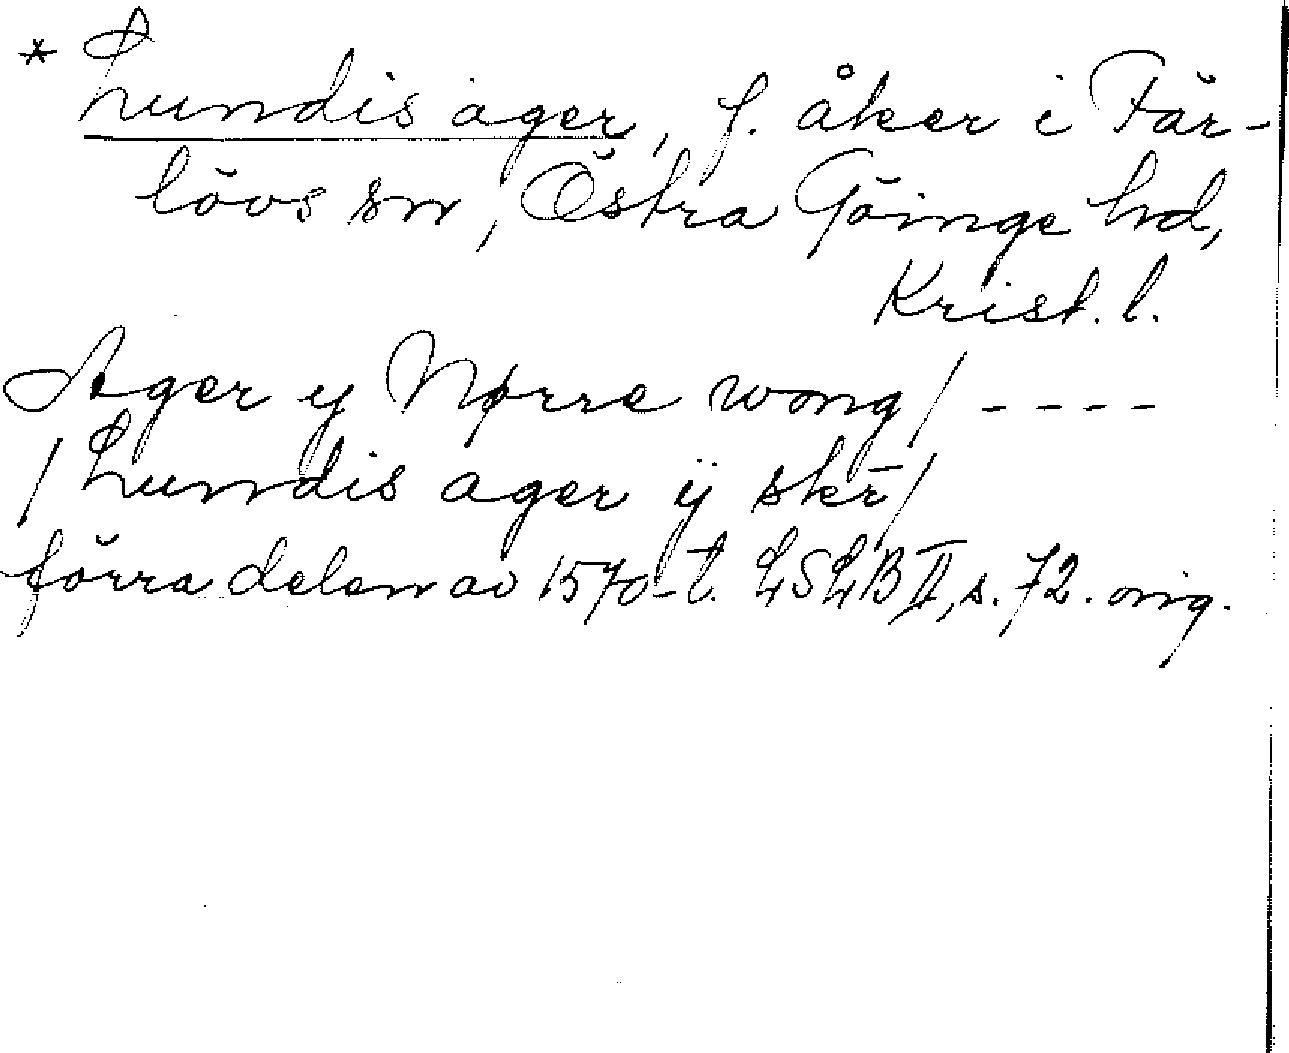 * Lundis ager, f. åker i Fär-
lövs sn, Östra Göinge hd,
Krist. l.
Ager y Nørre wong / ----
/ Lundis ager ÿ skr̄ /
förra delen av 1570-t. LSLB II, s. 72. orig.